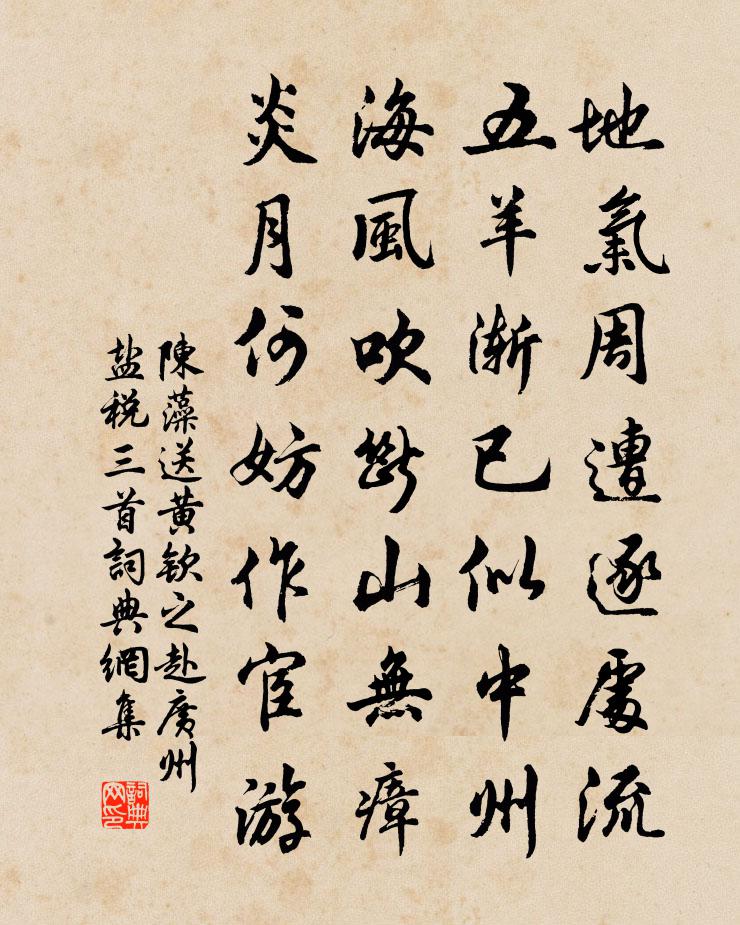 地氣周遭逐處流
五羊漸已似中州
海風吹斷山無瘴
炎月何妨作宦游
陳藻送黄欽之赴廣州
盐税三首詞典網集
詞典
网印